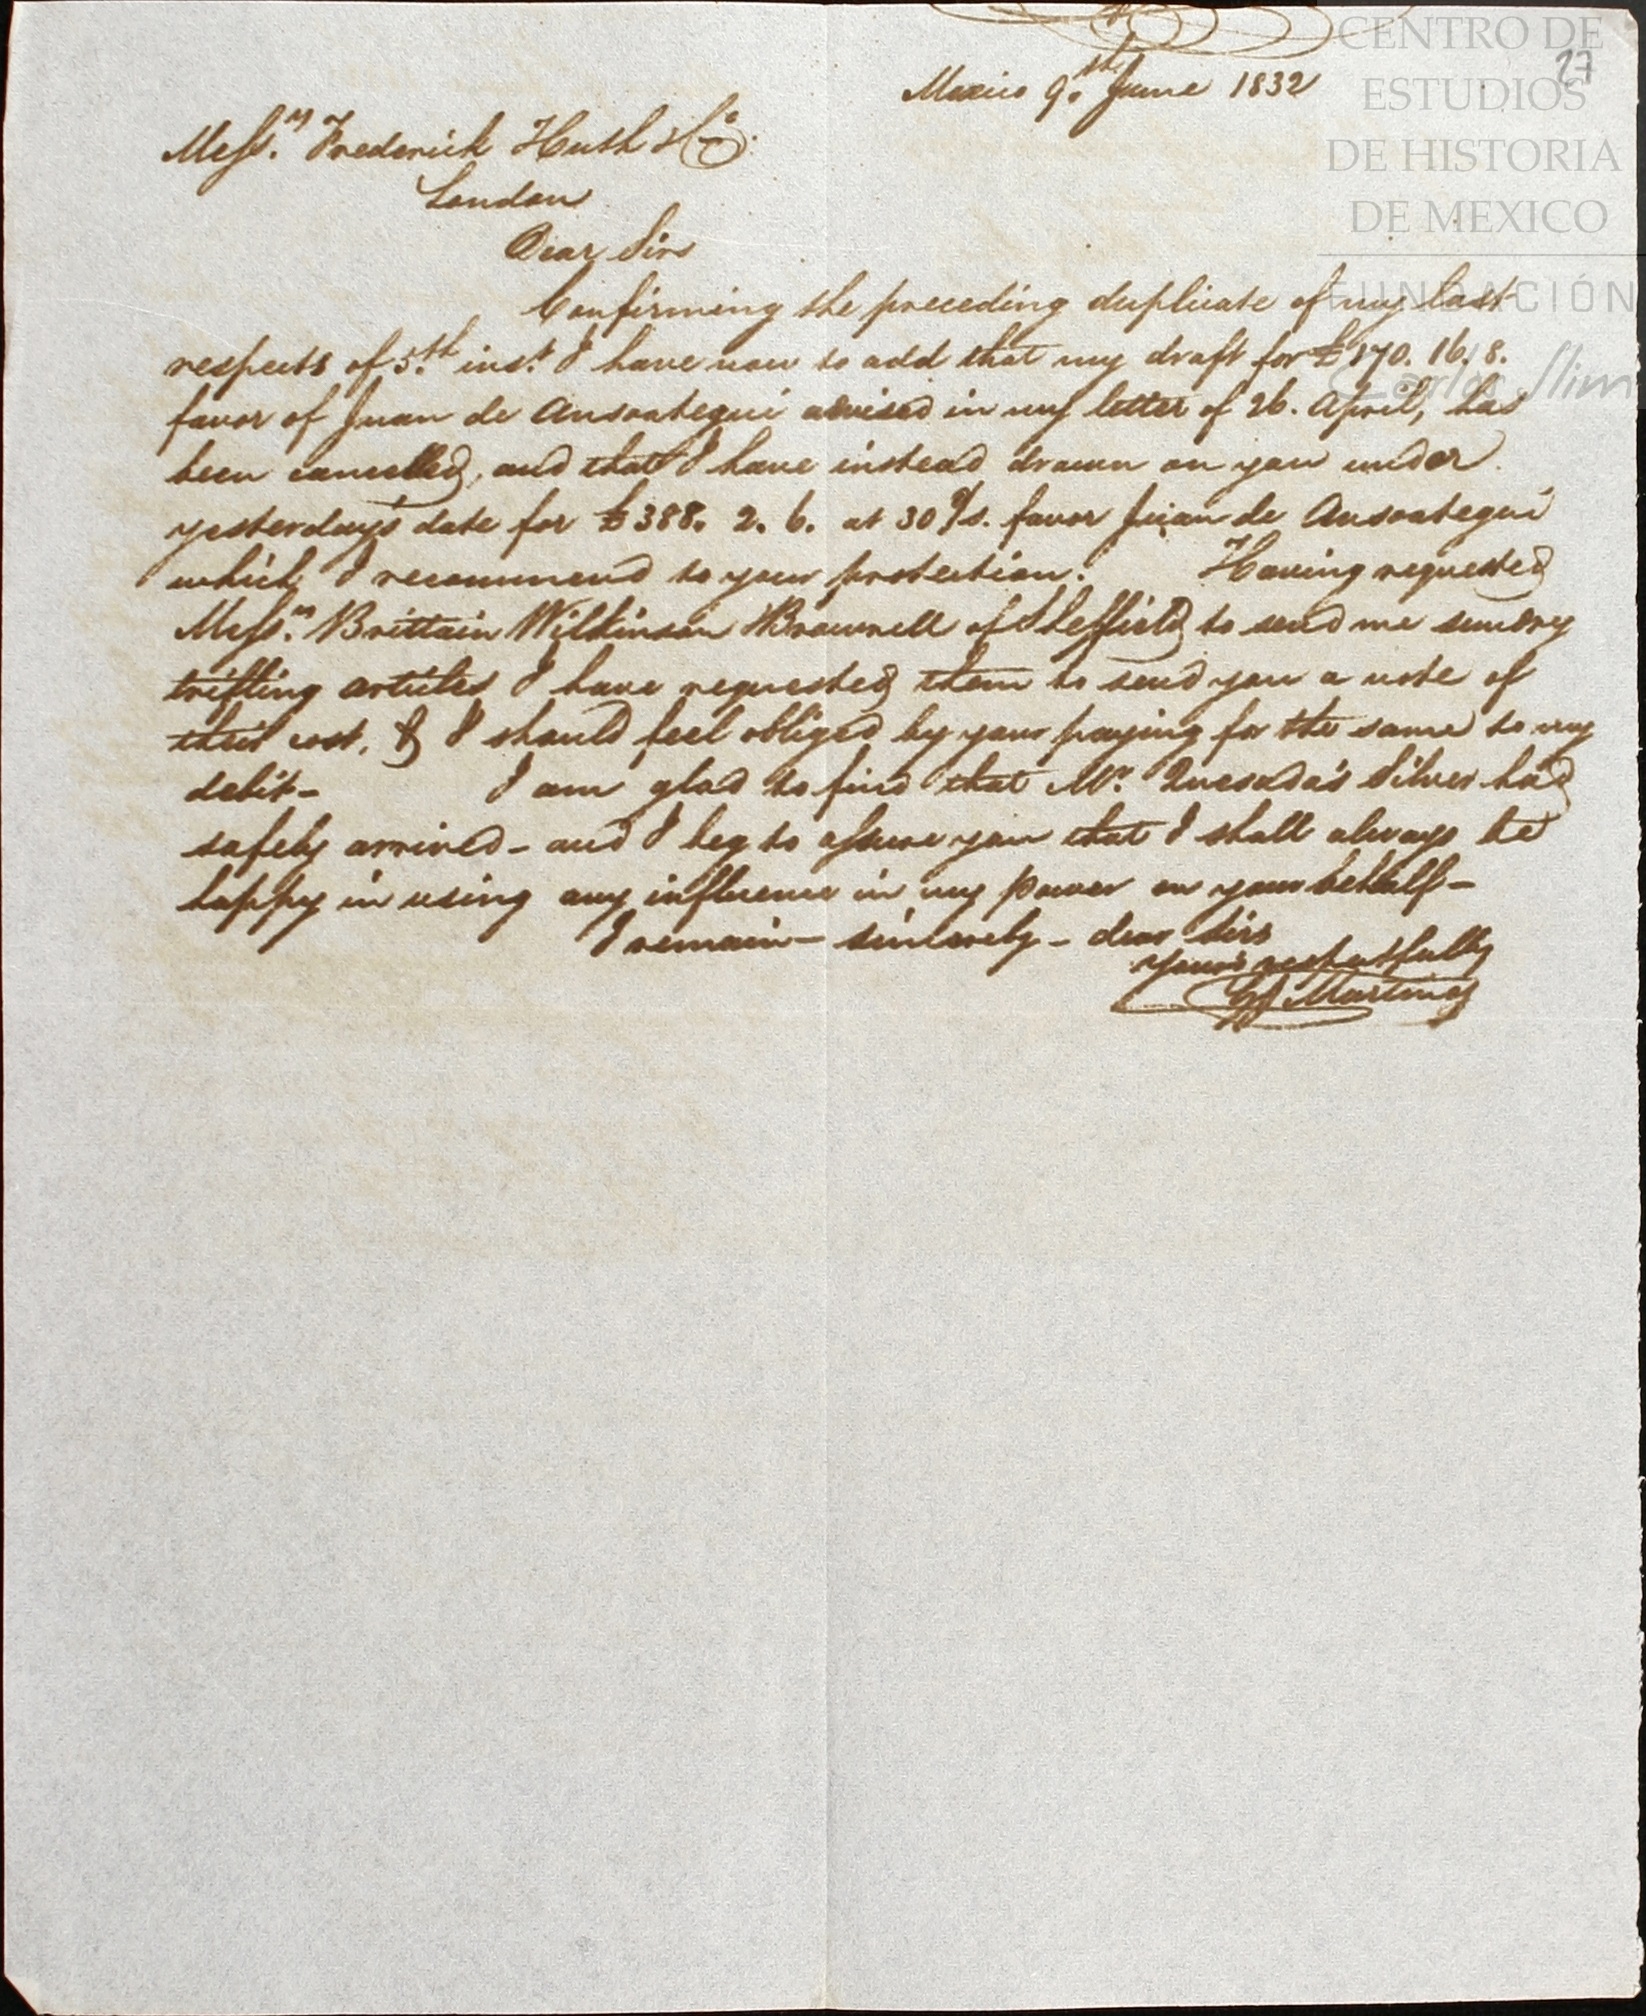 CENTRO DE
ESTUDIOS
DE HISTORIA
DE MEXICO
FUNDACIÓN
Carlos Slim
27
Mexico 9.th June 1832
Mess.rs Frederick Huth & Co.
London
Dear Sirs
Confirming the preceding duplicate of my last
respects of 5.th inst. I have now to add that my draft for £170. 16. 8.
favor of Juan de Ansoategui advised in my letter of 26. April, has
been cancelled, and that I have instead drawn on you under
yesterday's date for £388. 2. 6. at 30 d/s. favor Juan de Ansoategui
which I recommend to your protection. Having requested
Mess.rs Brittain Wilkinson & Brownell of Sheffield to send me sundry
trifling articles I have requested them to send you a note of
their cost, & I should feel obliged by your paying for the same to my
debit-
I am glad to find that Mr. Quesada's Silver had
safely arrived - and I beg to assure you that I shall always be
happy in using any influence in my power on your behalf -
I remain - sincerely - dear Sirs
Yours respectfully
Martinez